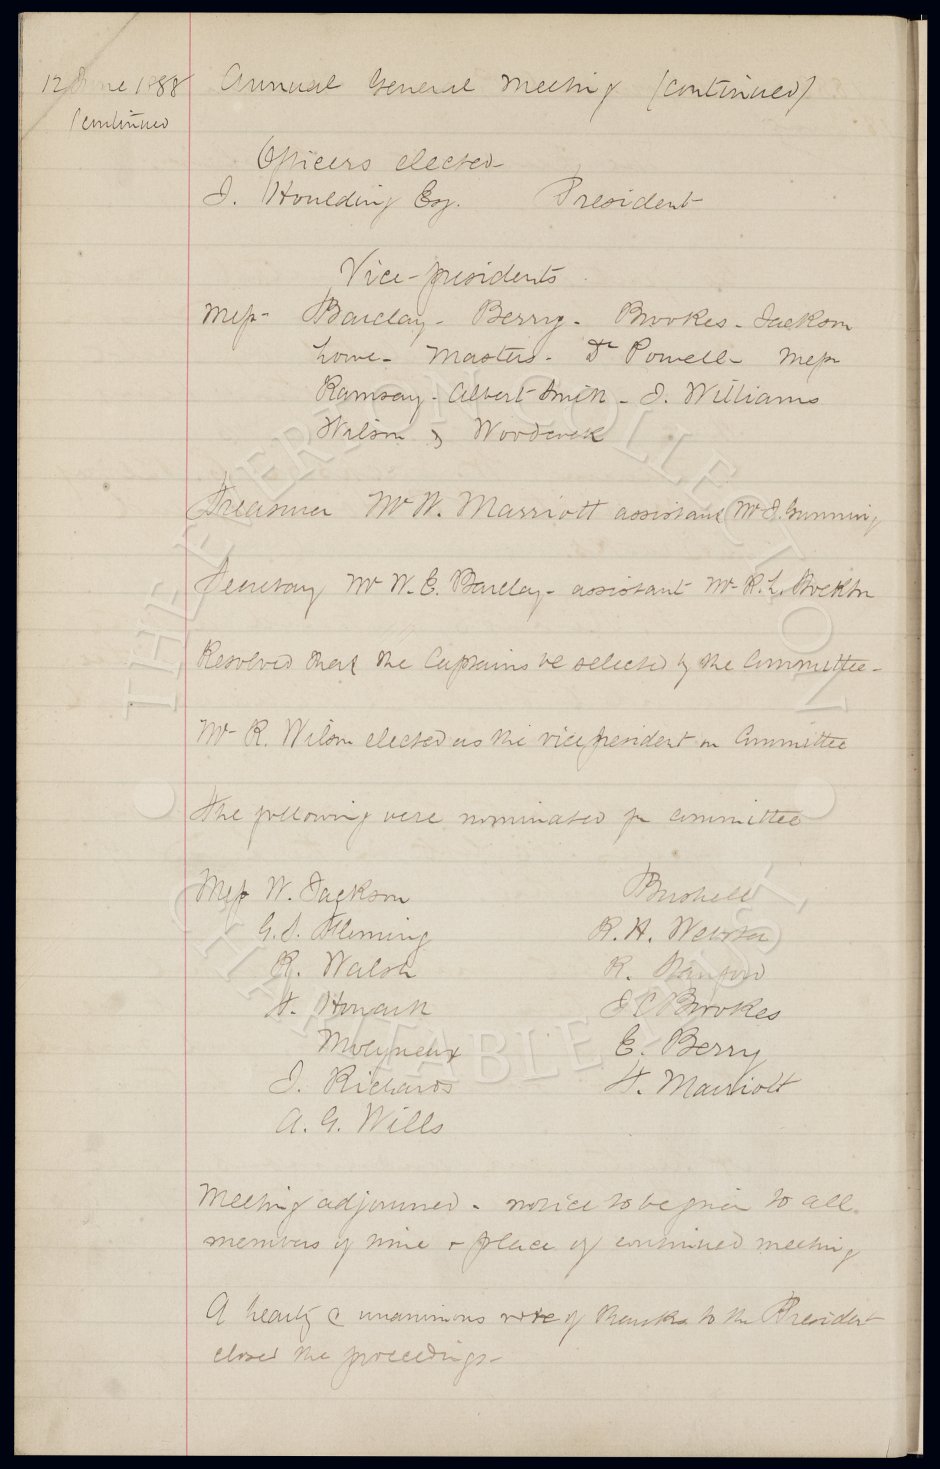 12 June 1888
(continued
Annual General Meeting (continued)
Officers elected
J. Houlding Esq. President
Vice-presidents
Mess- Barclay - Berry - Brookes - Jackson
Lowe - Masters - Dr Powell - Mess
Ramsay - Albert Smith - J. Williams
Wilson & Woodcock
Treasurer Mr W. Marriott assistant Mr J. Gunning
Secretary Mr W. E. Barclay - assistant Mr R. L. Stockton
Resolved that the Captains be selected by the Committee -
Mr R. Wilson elected as the vice president on Committee
The following were nominated for committee
Mess W. Jackson
G. S. Fleming
R. Walsh
Howarth
Molyneux
J. Richards
A. G. Wills
Bushell
R. H. Webster
R.
E C Brookes
E. Berry
Marriott
Meeting adjourned - notice to be given to all
members of time & place of continued meeting
A hearty & unanimous vote of thanks to the President
closed the proceedings -
THE EVERTON COLLECTION
CHARITABLE TRUST